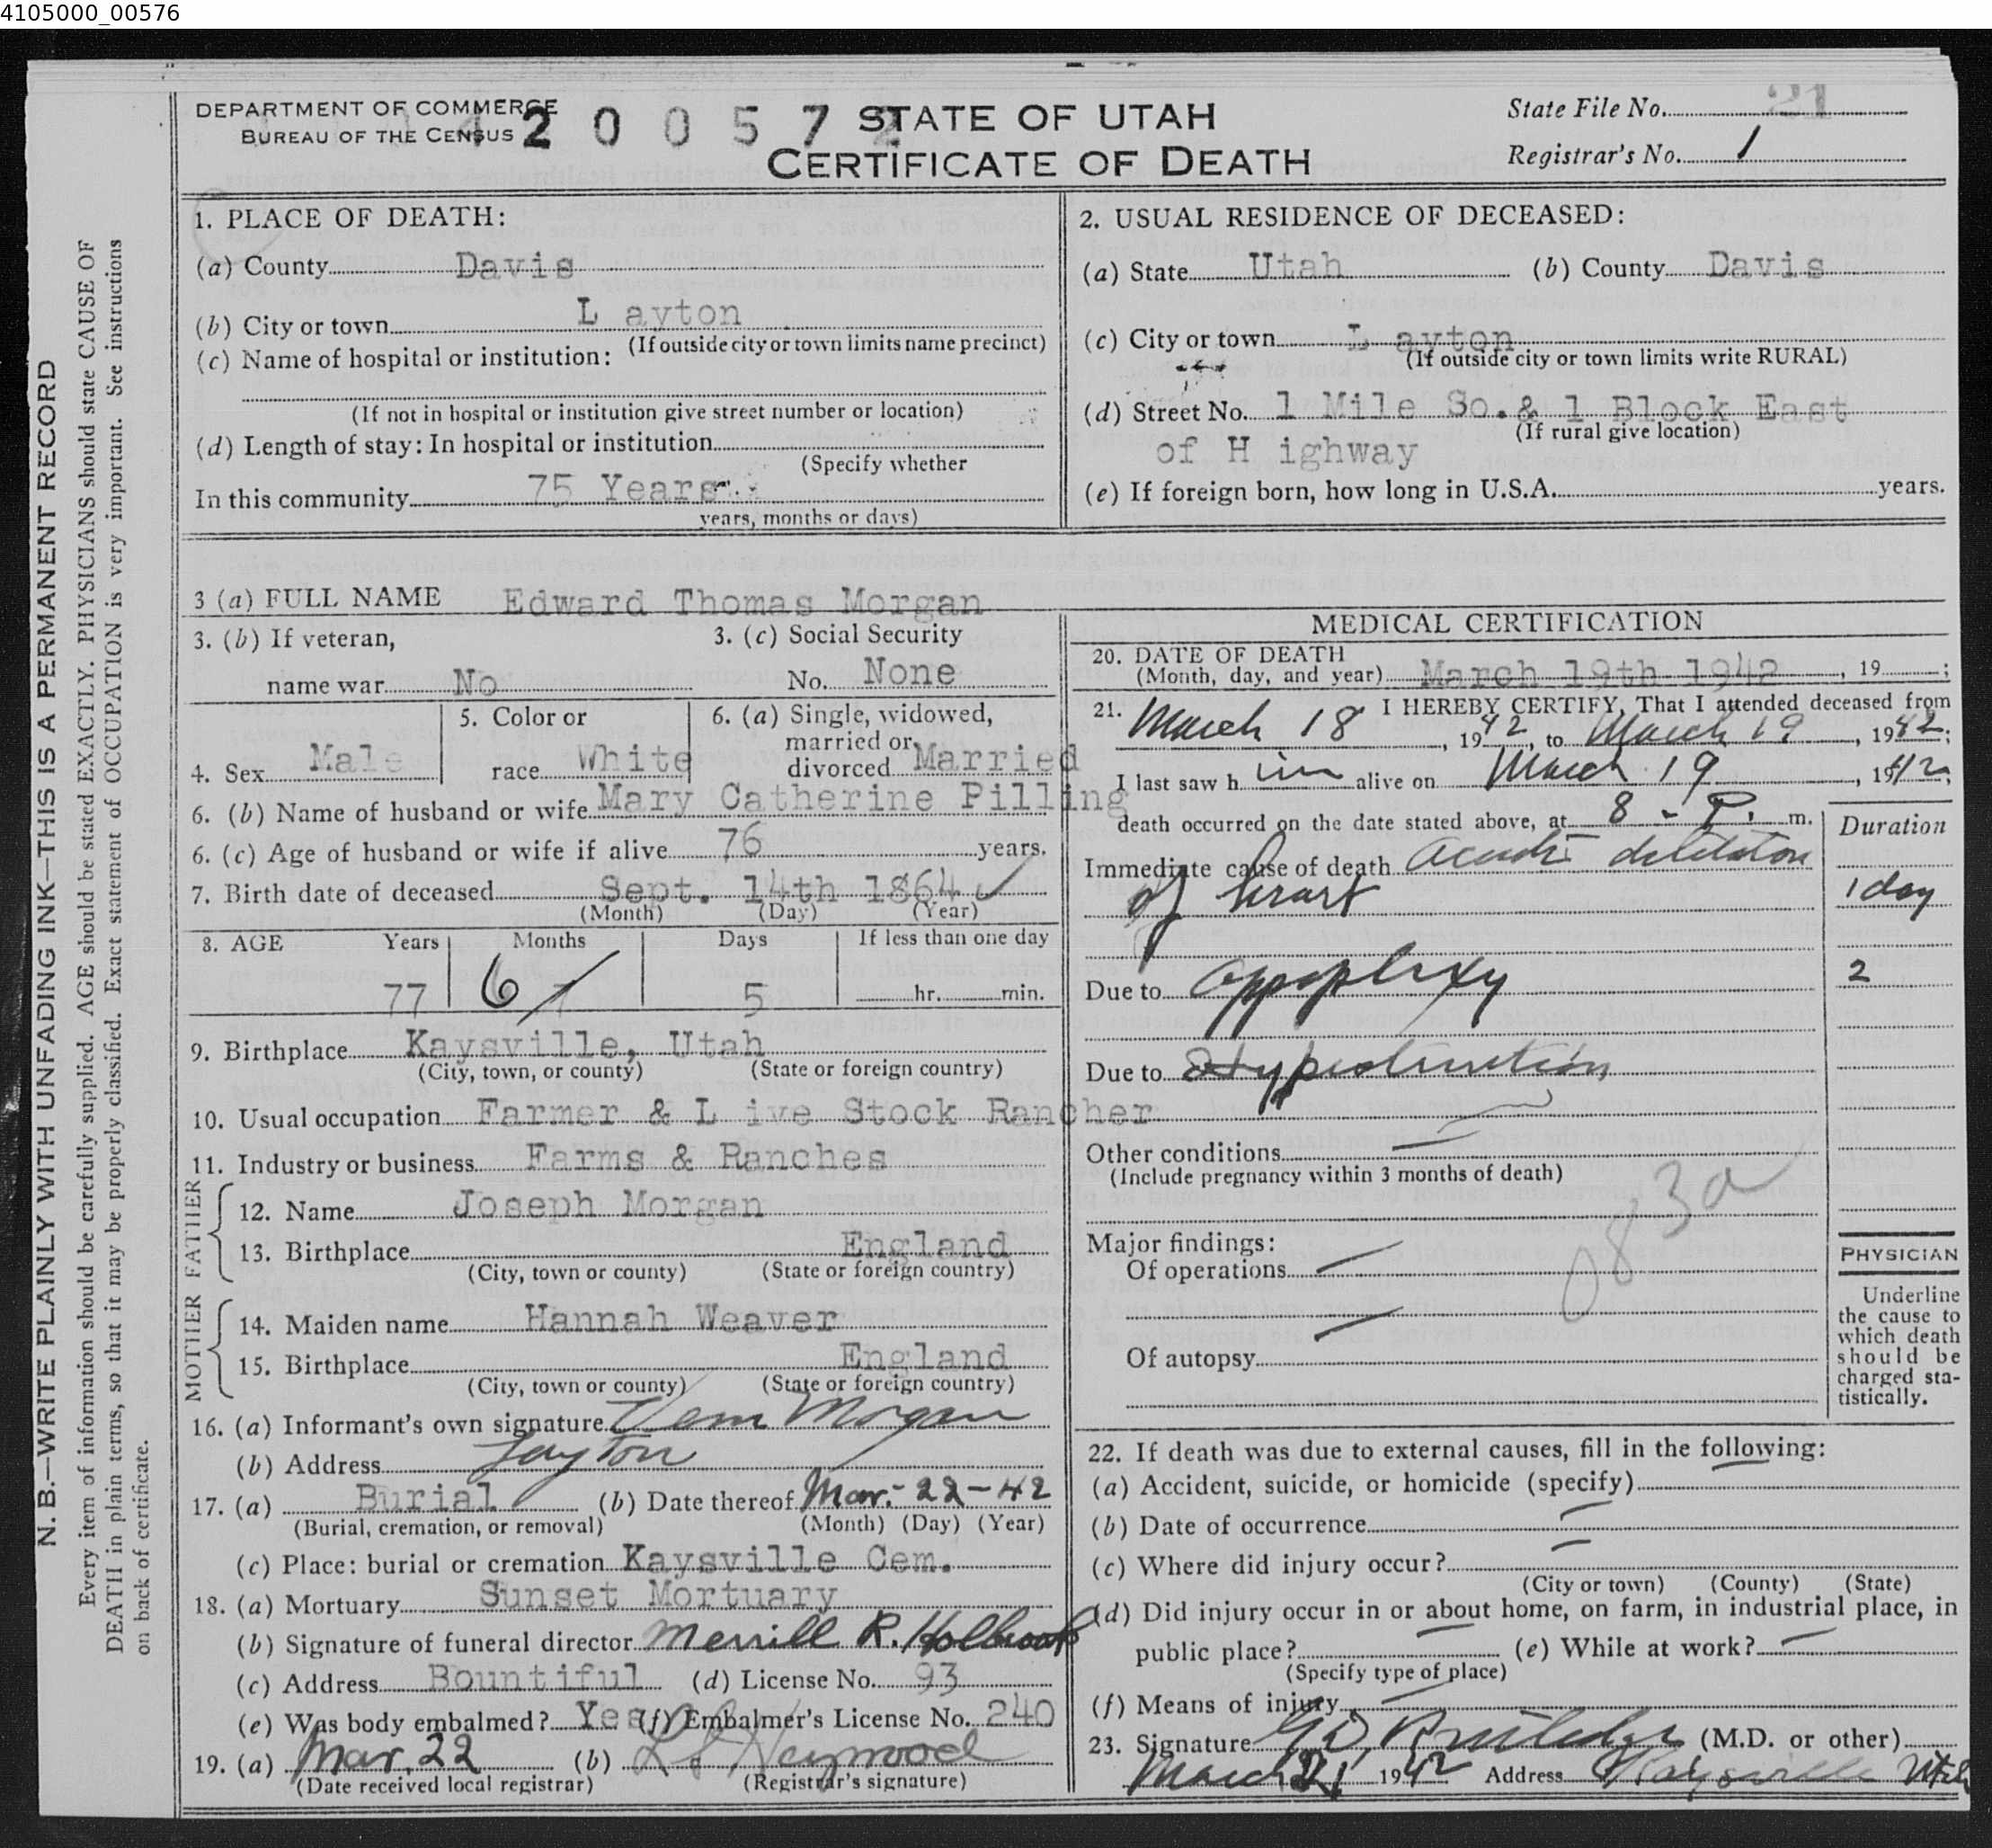 4105000_00576
DEPARTMENT OF COMMERCE
BUREAU OF THE CENSUS
4200572
STATE OF UTAH
CERTIFICATE OF DEATH
State File No. 21
Registrar's No. 1
N. B.—WRITE PLAINLY WITH UNFADING INK—THIS IS A PERMANENT RECORD
Every item of information should be carefully supplied. AGE should be stated EXACTLY. PHYSICIANS should state CAUSE OF
DEATH in plain terms, so that it may be properly classified. Exact statement of OCCUPATION is very important. See instructions
on back of certificate.
1. PLACE OF DEATH:
(a) County Davis
(b) City or town L ayton
(If outside city or town limits name precinct)
(c) Name of hospital or institution:
(If not in hospital or institution give street number or location)
(d) Length of stay: In hospital or institution
(Specify whether
In this community 75 Years
years, months or days)
2. USUAL RESIDENCE OF DECEASED:
(a) State Utah (b) County Davis
(c) City or town L ayton
(If outside city or town limits write RURAL)
(d) Street No. 1 Mile So. & 1 Block East
(If rural give location)
of H ighway
(e) If foreign born, how long in U.S.A. years.
3 (a) FULL NAME Edward Thomas Morgan
3. (b) If veteran,
name war No
3. (c) Social Security
No. None
4. Sex Male
5. Color or
race White
6. (a) Single, widowed,
married or
divorced Married
6. (b) Name of husband or wife Mary Catherine Pilling
6. (c) Age of husband or wife if alive 76 years.
7. Birth date of deceased Sept. 14th 1864
(Month) (Day) (Year)
8. AGE Years Months Days If less than one day
77 6 7 5 hr. min.
9. Birthplace Kaysville, Utah
(City, town, or county) (State or foreign country)
10. Usual occupation Farmer & L ive Stock Rancher
11. Industry or business Farms & Ranches
FATHER
12. Name Joseph Morgan
13. Birthplace England
(City, town or county) (State or foreign country)
MOTHER
14. Maiden name Hannah Weaver
15. Birthplace England
(City, town or county) (State or foreign country)
16. (a) Informant's own signature Morgan
(b) Address Layton
17. (a) Burial (b) Date thereof Mar. - 22 - 42
(Burial, cremation, or removal) (Month) (Day) (Year)
(c) Place: burial or cremation Kaysville Cem.
18. (a) Mortuary Sunset Mortuary
(b) Signature of funeral director Merrill R. Holbrook
(c) Address Bountiful (d) License No. 93
(e) Was body embalmed? Yes (f) Embalmer's License No. 240
19. (a) Mar. 22 (b) Heywood
(Date received local registrar) (Registrar's signature)
MEDICAL CERTIFICATION
20. DATE OF DEATH
(Month, day, and year) March 19th 1942, 19 ;
21. I HEREBY CERTIFY, That I attended deceased from
March 18, 1942, to March 19, 1942;
I last saw h im alive on March 19, 1942,
death occurred on the date stated above, at 8 - P. m.
Duration
Immediate cause of death
of heart
1 day
Due to Appoplexy
2
Due to
Other conditions
(Include pregnancy within 3 months of death)
083a
Major findings:
Of operations
Of autopsy
PHYSICIAN
Underline
the cause to
which death
should be
charged sta-
tistically.
22. If death was due to external causes, fill in the following:
(a) Accident, suicide, or homicide (specify)
(b) Date of occurrence
(c) Where did injury occur?
(City or town) (County) (State)
(d) Did injury occur in or about home, on farm, in industrial place, in
public place? (e) While at work?
(Specify type of place)
(f) Means of injury
23. Signature (M.D. or other)
March 21, 1942 Address Kaysville Utah